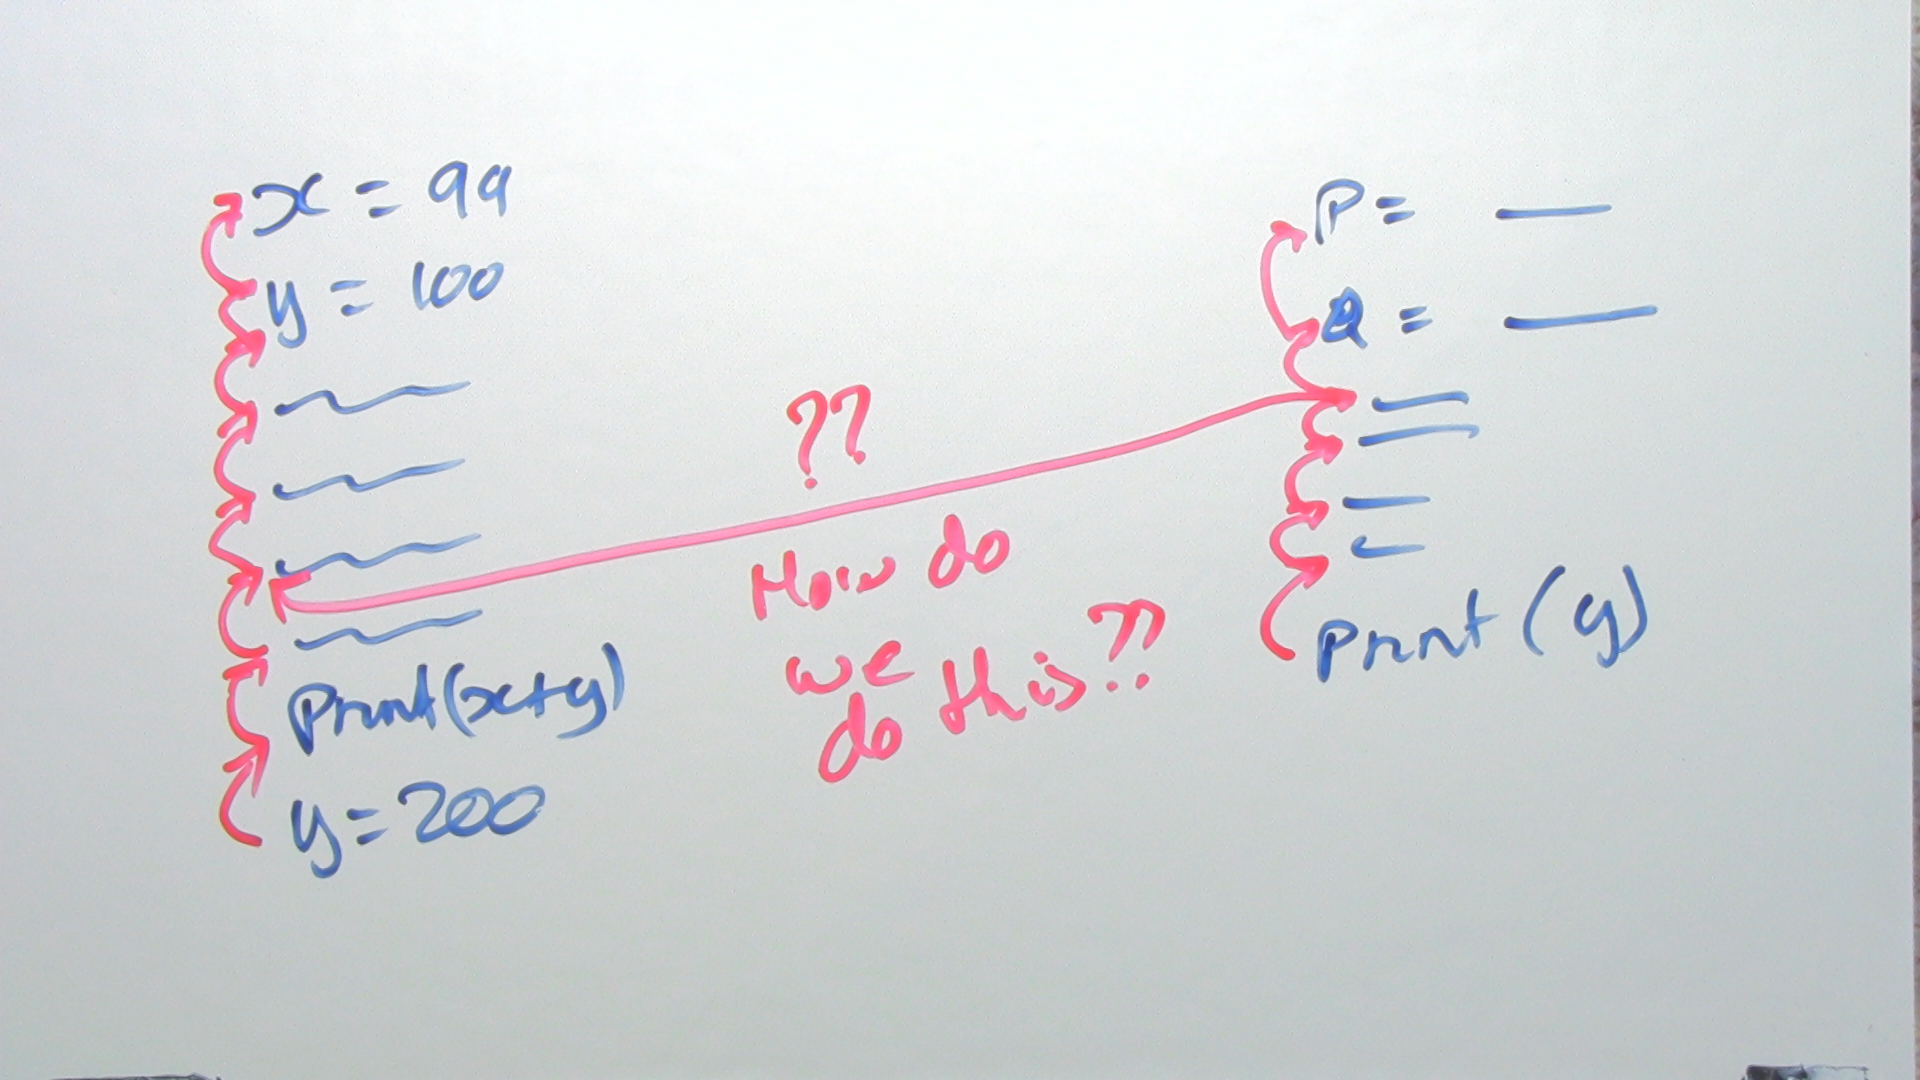 x = 99
y = 100
Print(x+y)
y = 200
??
How do
we
do this??
P =
Q =
Print (y)